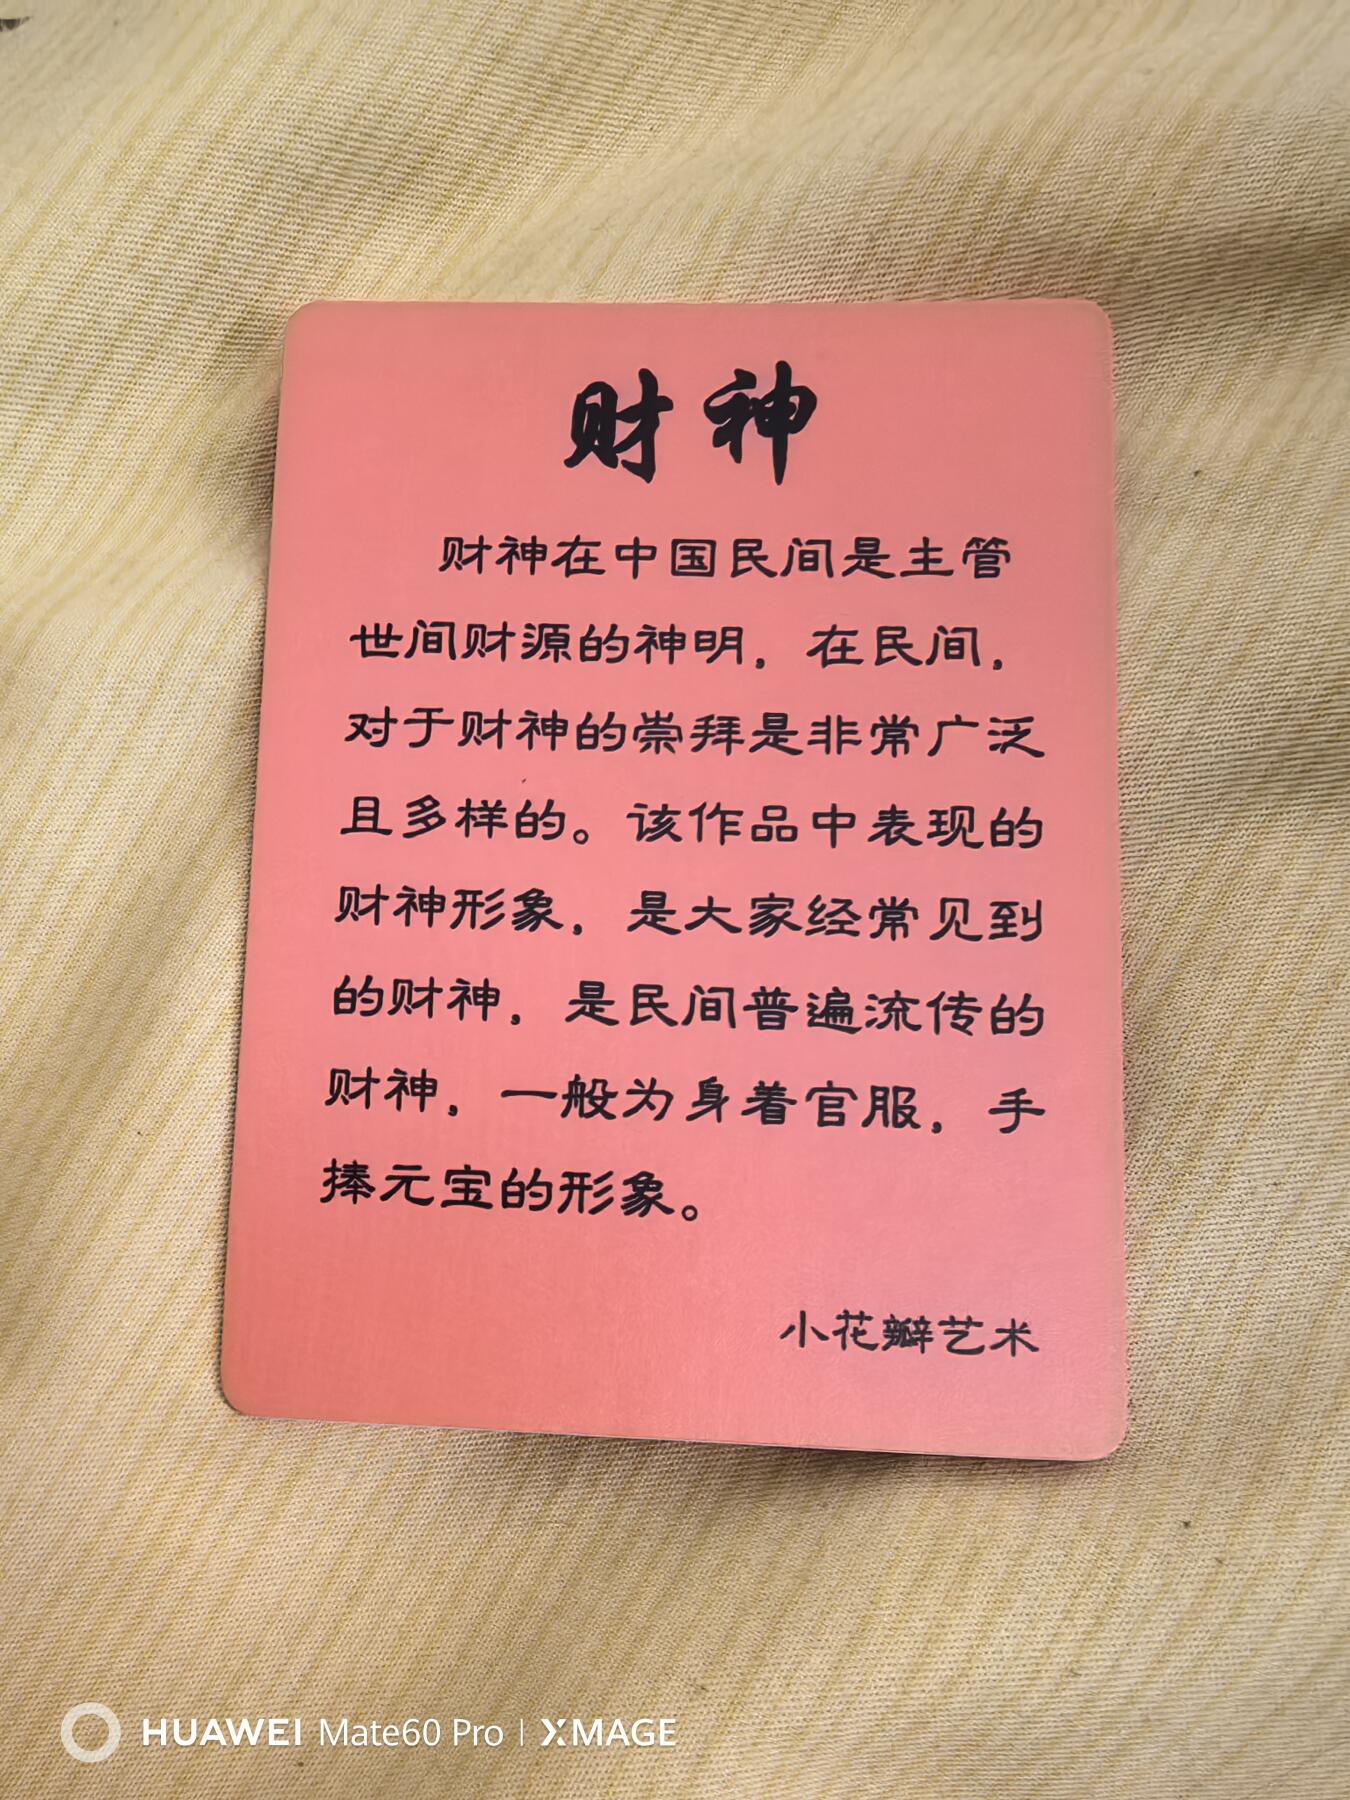 财神
财神在中国民间是主管
世间财源的神明，在民间，
对于财神的崇拜是非常广泛
且多样的。该作品中表现的
财神形象，是大家经常见到
的财神，是民间普遍流传的
财神，一般为身着官服，手
捧元宝的形象。
小花瓣艺术
HUAWEI Mate60 Pro | XMAGE